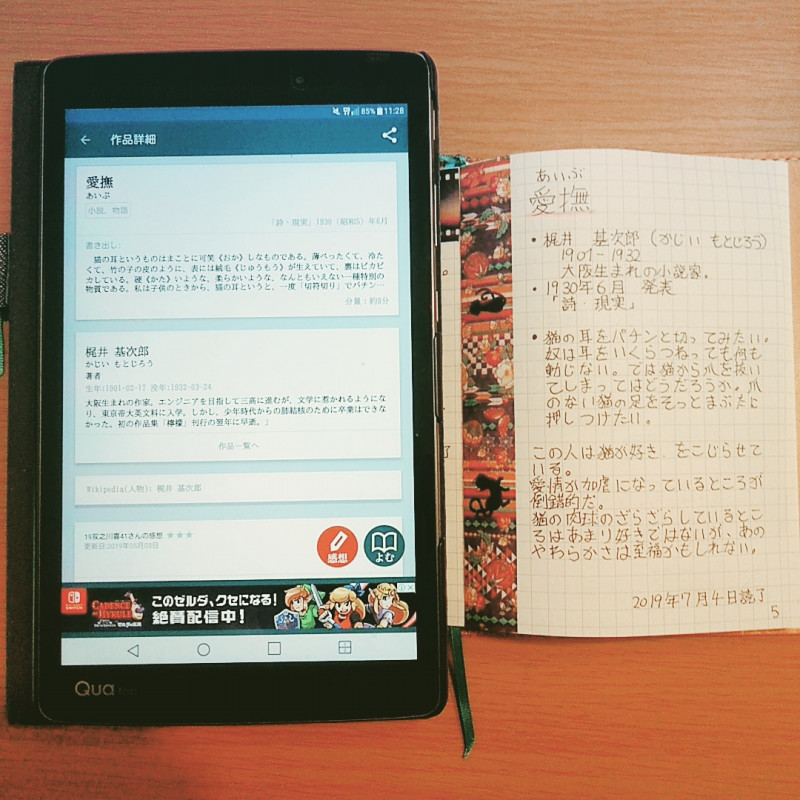 85% 11:28
作品詳細
愛撫
あいぶ
小説、物語
「詩・現実」1930(昭和5)年6月
書き出し:
猫の耳というものはまことに可笑《おか》しなものである。薄べったくて、冷た
くて、竹の子の皮のように、表には絨毛《じゅうもう》が生えていて、裏はピカピ
カしている。硬《かた》いような、柔らかいような、なんともいえない一種特別の
物質である。私は子供のときから、猫の耳というと、一度「切符切り」でパチン…
分量:約8分
梶井 基次郎
かじい もとじろう
著者
生年:1901-02-17 没年:1932-03-24
大阪生まれの作家。エンジニアを目指して三高に進むが、文学に惹かれるようにな
り、東京帝大英文科に入学。しかし、少年時代からの肺結核のために卒業はできな
かった。初の作品集「檸檬」刊行の翌年に早逝。」
作品一覧へ
Wikipedia(人物): 梶井 基次郎
19双之川喜41さんの感想 ★★★
更新日:2019年05月03日
感想
よむ
NINTENDO SWITCH
CADENCE OF HYRULE
このゼルダ、クセになる!
絶賛配信中!
Qua
あいぶ
愛撫
• 梶井 基次郎(かじい もとじろう)
1901-1932
大阪生まれの小説家。
• 1930年6月 発表
「詩・現実」
• 猫の耳をパチンと切ってみたい。
奴は耳をいくらつねっても何も
動じない。では猫から爪を抜い
てしまってはどうだろうか。爪
のない猫の足をそっとまぶたに
押しつけたい。
この人は猫が好きをこじらせて
いる。
愛情が加虐になっているところが
倒錯的だ。
猫の肉球のざらざらしているとこ
ろはあまり好きではないが、あの
やわらかさは至福かもしれない。
2019年7月4日読了
5